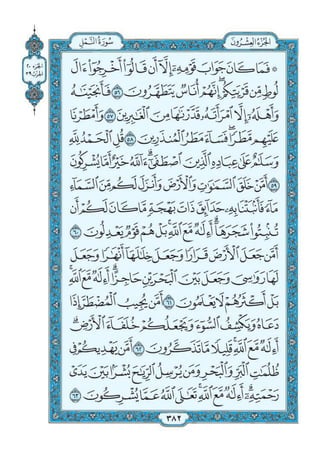 الجزء العشرون
سورة النمل
۞ فَمَا كَانَ جَوَابَ قَوْمِهِ إِلَّا أَن قَالُوا أَخْرِجُوا ءَالَ
لُوطٍ مِّن قَرْيَتِكُمْ إِنَّهُمْ أُنَاسٌ يَتَطَهَّرُونَ ٥٦ فَأَنجَيْنَاهُ
وَأَهْلَهُ إِلَّا امْرَأَتَهُ قَدَّرْنَاهَا مِنَ الْغَابِرِينَ ٥٧ وَأَمْطَرْنَا
عَلَيْهِم مَّطَرًا فَسَاءَ مَطَرُ الْمُنذَرِينَ ٥٨ قُلِ الْحَمْدُ لِلَّهِ
وَسَلَامٌ عَلَى عِبَادِهِ الَّذِينَ اصْطَفَى ءَاللَّهُ خَيْرٌ أَمَّا يُشْرِكُونَ
٥٩ أَمَّنْ خَلَقَ السَّمَاوَاتِ وَالْأَرْضَ وَأَنزَلَ لَكُم مِّنَ السَّمَاءِ
مَاءً فَأَنبَتْنَا بِهِ حَدَائِقَ ذَاتَ بَهْجَةٍ مَّا كَانَ لَكُمْ أَن
تُنبِتُوا شَجَرَهَا أَءِلَهٌ مَّعَ اللَّهِ بَلْ هُمْ قَوْمٌ يَعْدِلُونَ ٦٠
أَمَّن جَعَلَ الْأَرْضَ قَرَارًا وَجَعَلَ خِلَالَهَا أَنْهَارًا وَجَعَلَ
لَهَا رَوَاسِيَ وَجَعَلَ بَيْنَ الْبَحْرَيْنِ حَاجِزًا أَءِلَهٌ مَّعَ اللَّهِ
بَلْ أَكْثَرُهُمْ لَا يَعْلَمُونَ ٦١ أَمَّن يُجِيبُ الْمُضْطَرَّ إِذَا
دَعَاهُ وَيَكْشِفُ السُّوءَ وَيَجْعَلُكُمْ خُلَفَاءَ الْأَرْضِ
أَءِلَهٌ مَّعَ اللَّهِ قَلِيلًا مَّا تَذَكَّرُونَ ٦٢ أَمَّن يَهْدِيكُمْ فِي
ظُلُمَاتِ الْبَرِّ وَالْبَحْرِ وَمَن يُرْسِلُ الرِّيَاحَ بُشْرًا بَيْنَ يَدَيْ
رَحْمَتِهِ أَءِلَهٌ مَّعَ اللَّهِ تَعَالَى اللَّهُ عَمَّا يُشْرِكُونَ ٦٣
٣٨٢